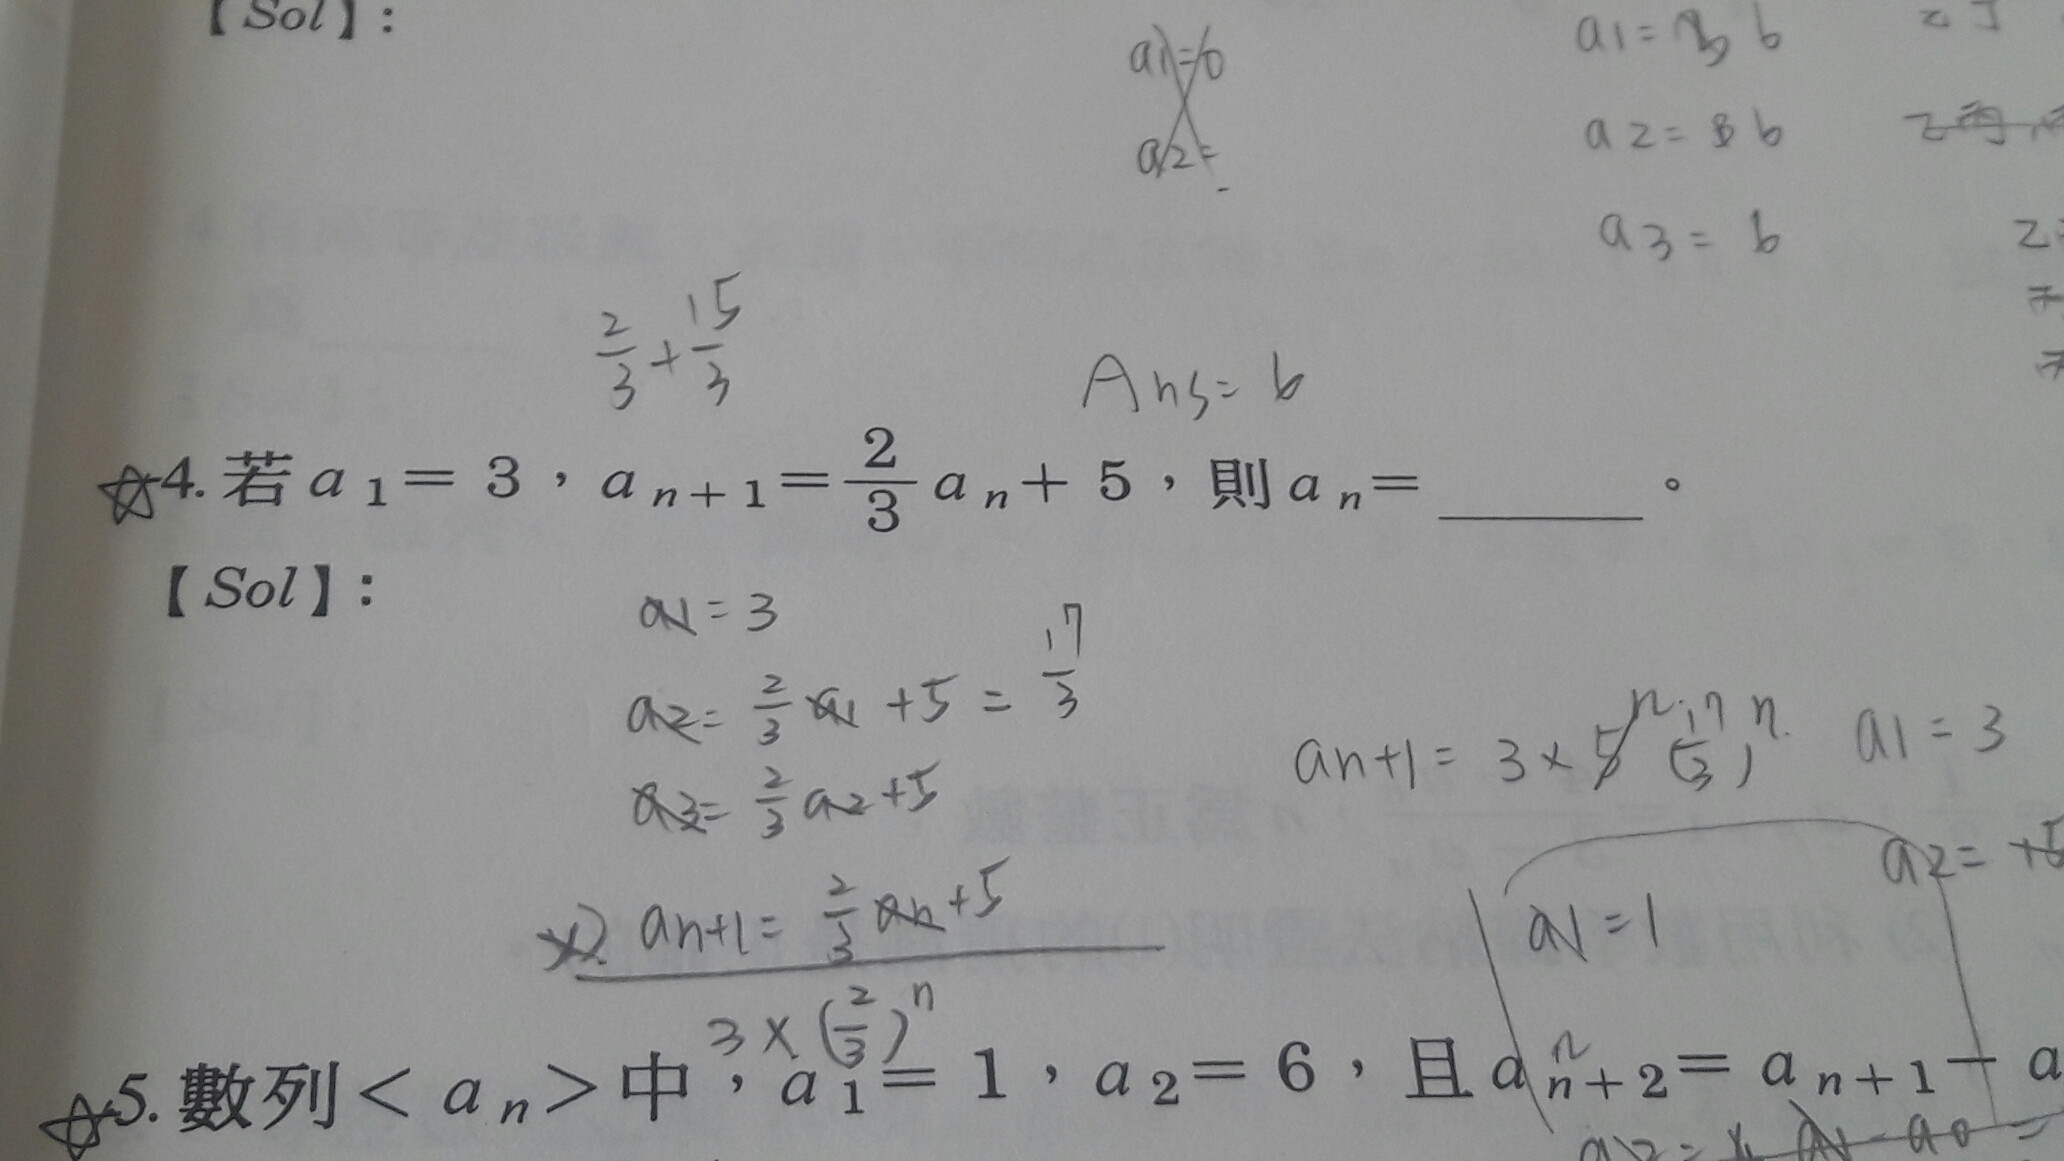 【Sol】:
a1=6
a2=
a1= b
a2= 8 b
a3 = b
2/3 + 15/3
Ans= b
☆4. 若 a₁ = 3，aₙ₊₁ = 2/3 aₙ + 5，則 aₙ = ______。
【Sol】:
a1 = 3
a2 = 2/3 a1 + 5 = 17/3
a3 = 2/3 a2 + 5
an+1 = 2/3 an + 5
3 × (2/3)ⁿ
an+1 = 3 × 5ⁿ (17/3)ⁿ
a1 = 3
a2 = +5
a1 = 1
☆5. 數列 < aₙ > 中，a₁ = 1，a₂ = 6，且 aₙ₊₂ = aₙ₊₁ − a
n